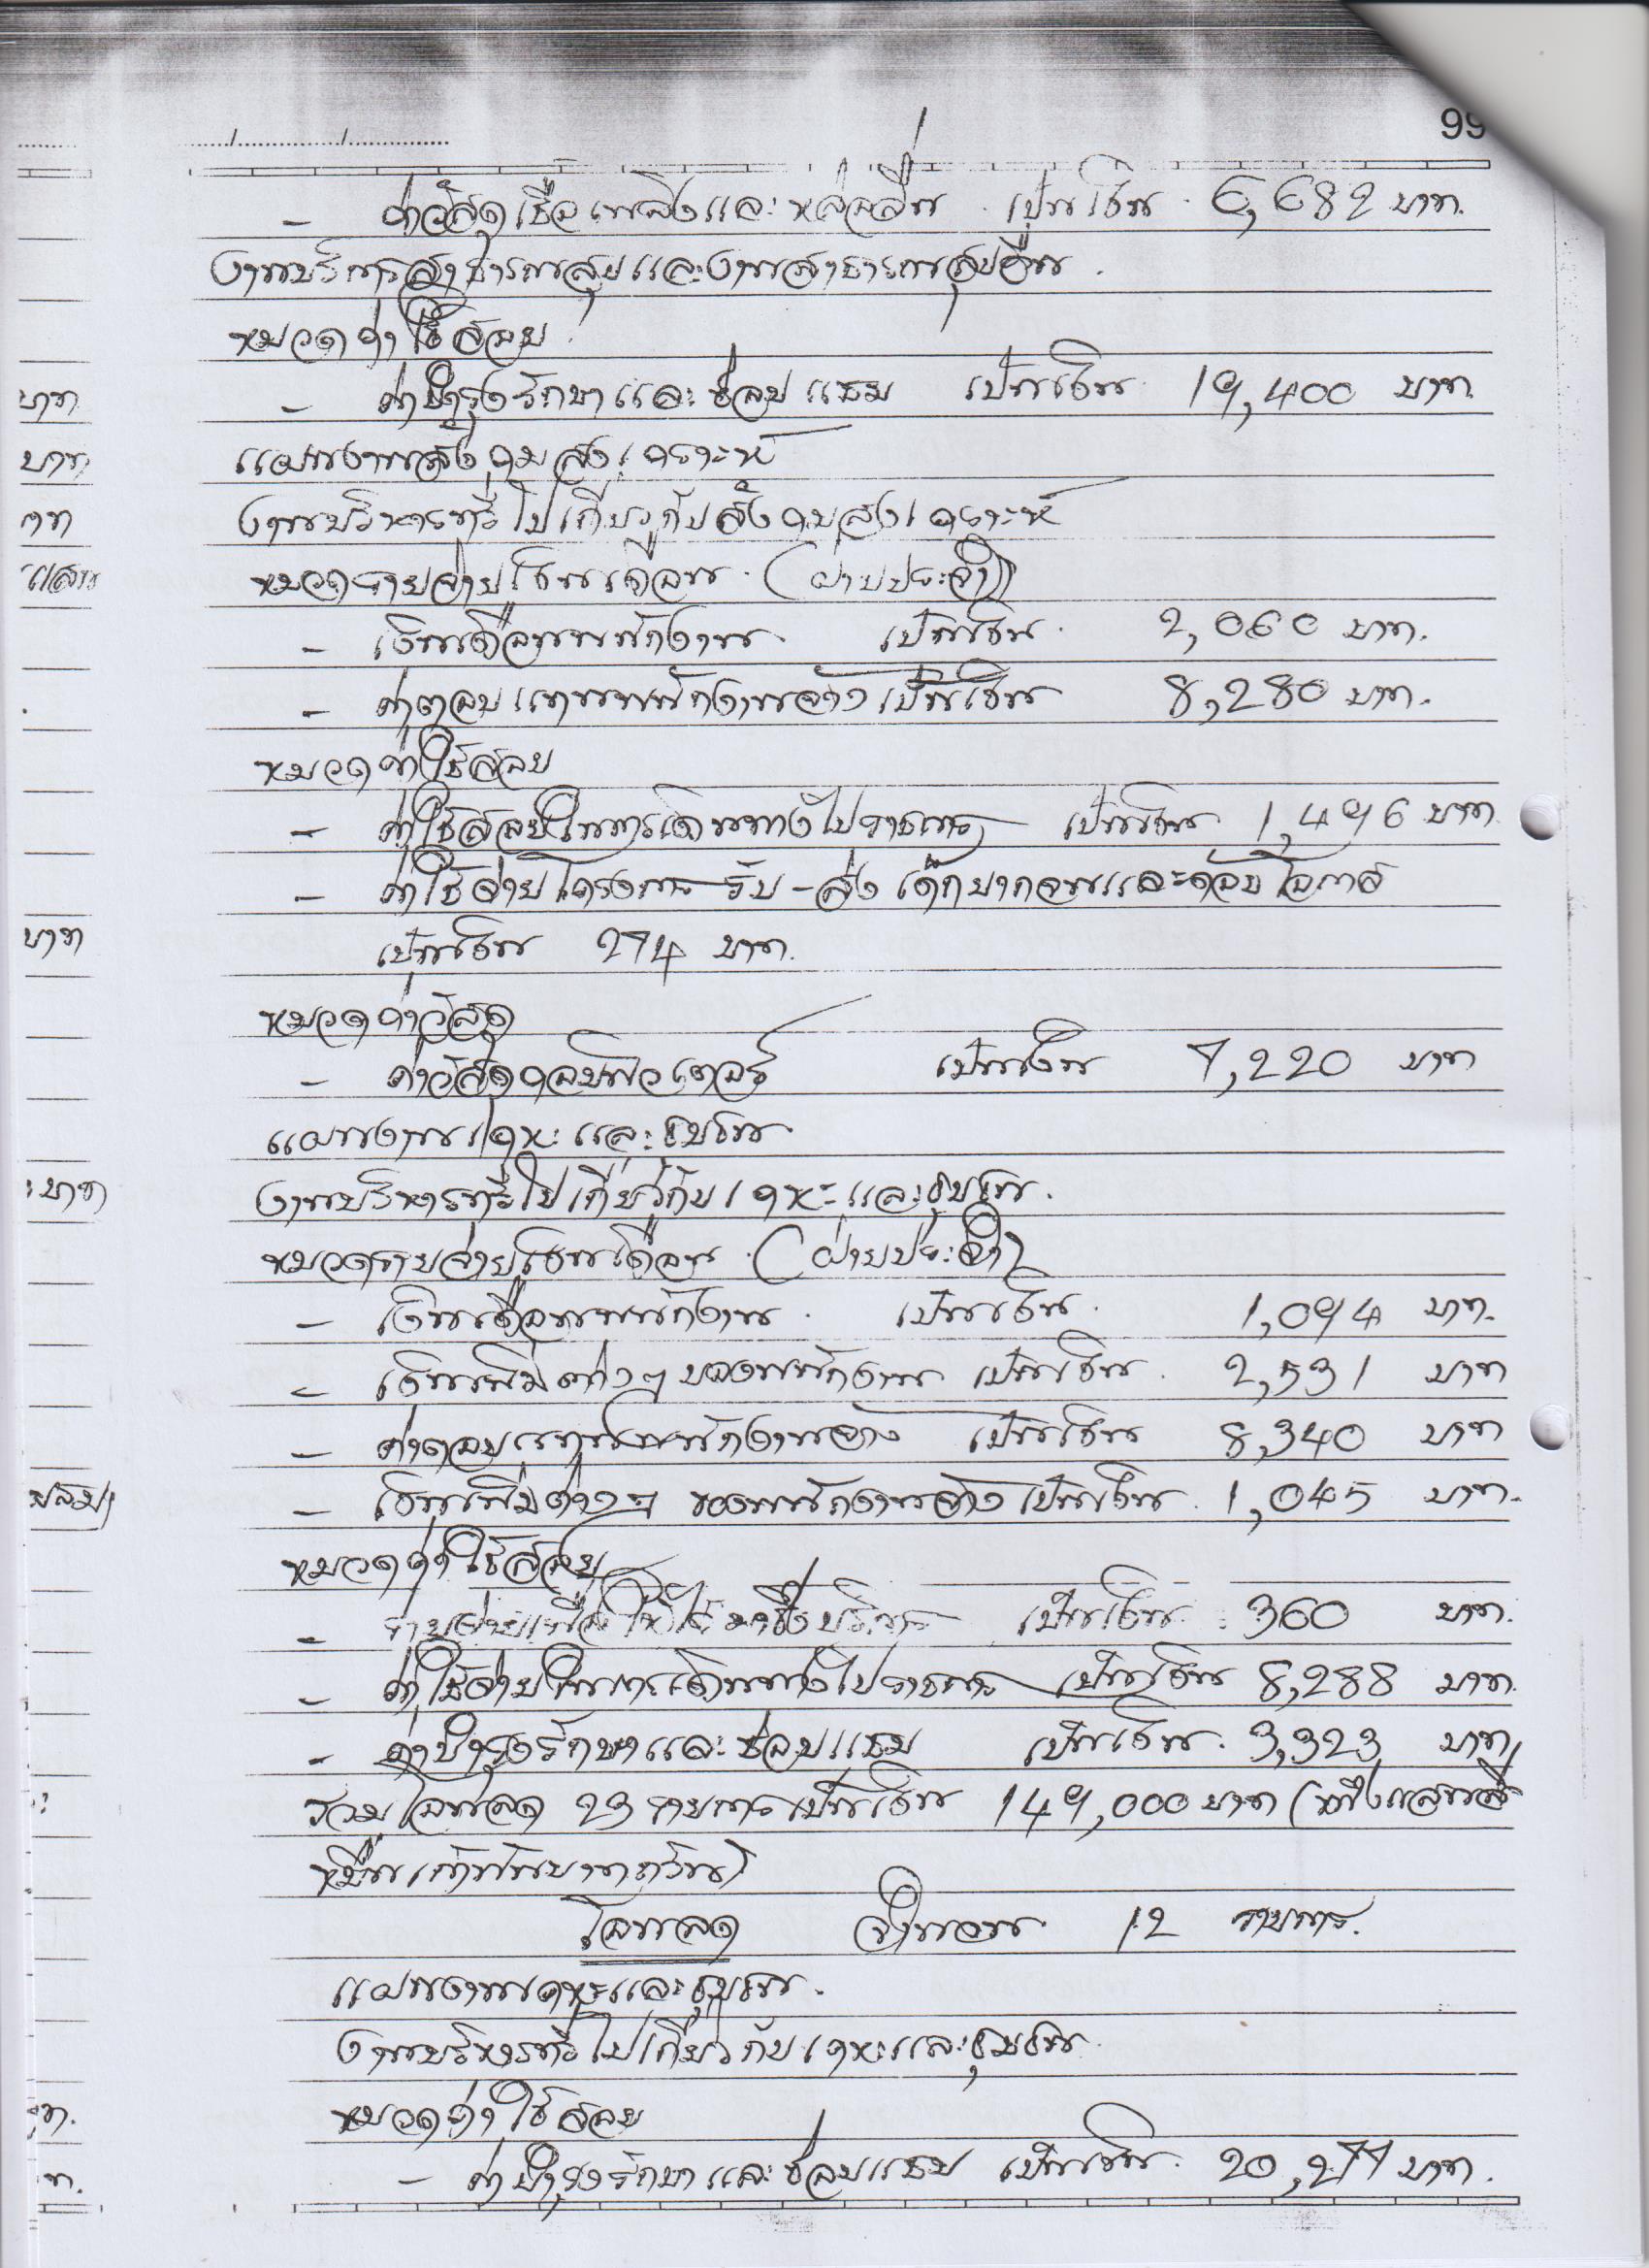 99
- ค่าวัสดุเชื้อเพลิงและหล่อลื่น เป็นเงิน 6,682 บาท.
งานบริการสาธารณสุขและงานสาธารณสุขอื่น.
หมวดค่าใช้สอย
- ค่าบำรุงรักษาและซ่อมแซม เป็นเงิน 19,400 บาท
บาท
แผนงานสังคมสงเคราะห์
บาท
งานบริหารทั่วไปเกี่ยวกับสังคมสงเคราะห์
หมวดรายจ่ายเงินเดือน (ฝ่ายประจำ)
- เงินเดือนพนักงาน เป็นเงิน 2,060 บาท.
- ค่าตอบแทนพนักงานจ้าง เป็นเงิน 8,280 บาท.
หมวดค่าใช้สอย
- ค่าใช้สอยในการเดินทางไปราชการ เป็นเงิน 1,496 บาท
- ค่าใช้จ่ายโครงการ รับ-ส่ง เด็กยากจนและด้อยโอกาส
บาท
เป็นเงิน 274 บาท.
หมวดค่าวัสดุ
- ค่าวัสดุคอมพิวเตอร์ เป็นเงิน 7,220 บาท
แผนงานเคหะและชุมชน
บาท
งานบริหารทั่วไปเกี่ยวกับเคหะและชุมชน.
หมวดรายจ่ายเงินเดือน (ฝ่ายประจำ)
- เงินเดือนพนักงาน เป็นเงิน 1,094 บาท.
- เงินเพิ่มต่างๆ ของพนักงาน เป็นเงิน 2,531 บาท
- ค่าตอบแทนพนักงานจ้าง เป็นเงิน 8,340 บาท
- เงินเพิ่มต่างๆ ของพนักงานจ้าง เป็นเงิน 1,045 บาท.
หมวดค่าใช้สอย
- รายจ่ายเพื่อให้ได้มาซึ่งบริการ เป็นเงิน 360 บาท.
- ค่าใช้จ่ายในการเดินทางไปราชการ เป็นเงิน 8,288 บาท.
- ค่าบำรุงรักษาและซ่อมแซม เป็นเงิน 3,323 บาท
รวมโอนลด 23 รายการ เป็นเงิน 149,000 บาท (หนึ่งแสนสี่
หมื่นเก้าพันบาทถ้วน)
โอนลด จำนวน 12 รายการ.
แผนงานเคหะและชุมชน.
งานบริหารทั่วไปเกี่ยวกับเคหะและชุมชน
หมวดค่าใช้สอย
- ค่าบำรุงรักษาและซ่อมแซม เป็นเงิน 20,277 บาท.